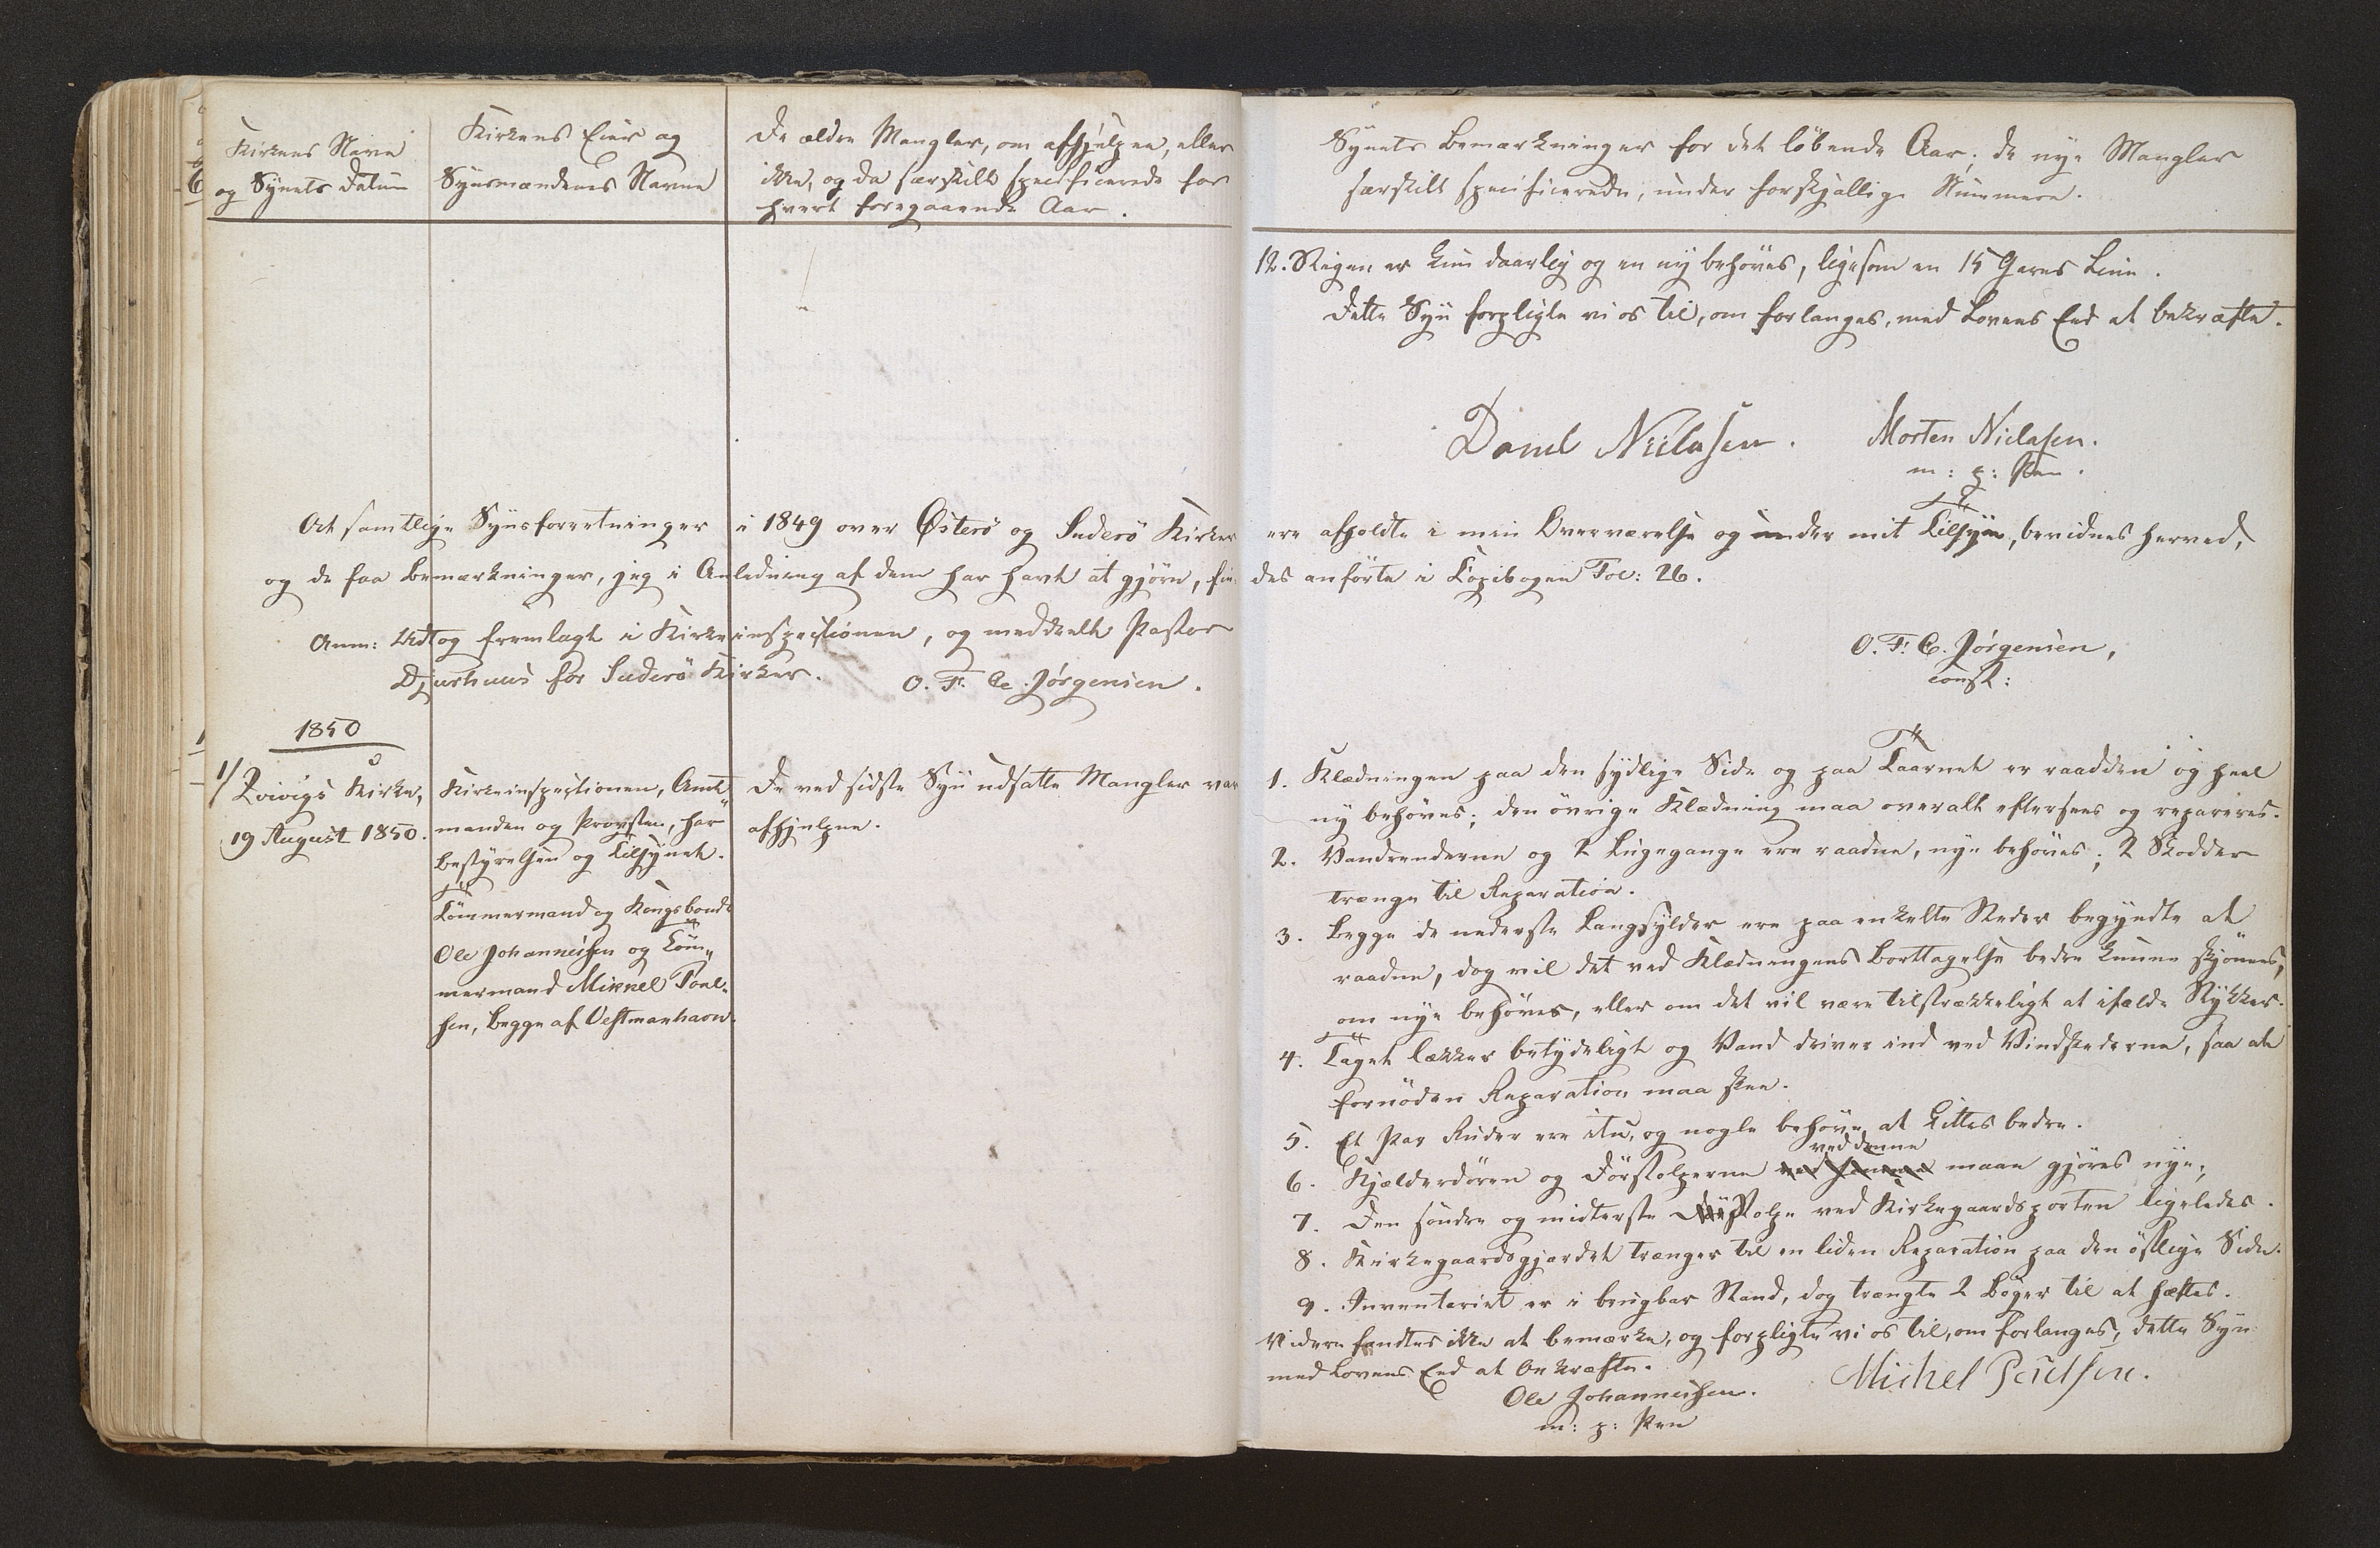 Kirkens Navn
og Synets Datum
Kirkens Eier og
Synsmændenes Navne
De ældre Mangler, om afhjulpne, eller
ikke, og da særskilt specificerede for
hvert foregaaende Aar.
At samtlige Synsforretninger i 1849 over Østerø og Suderö Kirker
og de faa Bemærkninger, jeg i Anledning af dem har havt at gjöre, fin-
Anm: Udtog fremlagt i Kirkeinspectionen, og meddeelt Pastor
Djurhuus for Suderö Kirker. O. F. C. Jörgensen.
1850
1/ Qvivigs Kirke,
19 August 1850.
Kirkeinspectionen, Amt-
manden og Provsten, har
Bestyrelsen og Tilsynet.
Tömmermand og Kongsbonde
Ole Johannessen og Töm-
mermand Mikkel Poul-
sen, begge af Vestmanhavn.
De ved sidste Syn udsatte Mangler var
afhjulpne.
Synets Bemærkninger for det löbende Aar; de nye Mangler
særskilt specificerede, under forskjællige Nummere.
12. Stigen er kun daarlig og en ny behöves, ligesom en 15 Garns Line.
Dette Syn forpligte vi os til, om forlanges, med Lovens Eed at bekræfte.
Danil Nielasen. Morten Nielasen.
m: p: Pen.
ere afholdte i min Overværelse og under mit Tilsyn, bevidnes herved,
des anförte i Copibogen Fol: 26.
O. F. C. Jörgensen,
const:
1. Klædningen paa den sydlige Side og paa Taarnet er raadden og heel
ny behöves; den övrige Klædning maa overalt eftersees og repareres.
2. Vandrenderne og 2 Lugegange ere raadne, nye behöves; 2 Skodder
trænge til Reparation.
3. Begge de nederste Langsylder ere paa enkelte Steder begyndte at
raadne, dog vil det ved Klædningens Borttagelse bedre kunne skjönnes,
om nye behöves, eller om det vil være tilstrækkeligt at ifælde Stykker.
4. Taget lækker betydeligt og Vand driver ind ved Vindskederne, saa at
fornöden Reparation maa skee.
5. Et Par Ruder ere itu, og nogle behöve at kittes bedre.
ved denne
6. Kjælderdören og Dörstolperne maae gjöres nye;
7. Den söndre og midterste Stolpe ved Kirkegaardsporten ligeledes.
8. Kirkegaardsgjærdet trænger til en liden Reparation paa den östlige Side.
9. Inventariet er i brugbar Stand, dog trængte 2 Böger til at hæftes.
Videre fandtes ikke at bemærke, og forpligte vi os til, om forlanges, dette Syn
med Lovens Eed at bekræfte.
Ole Johannessen. Michel Poulsen.
m: p: Pen